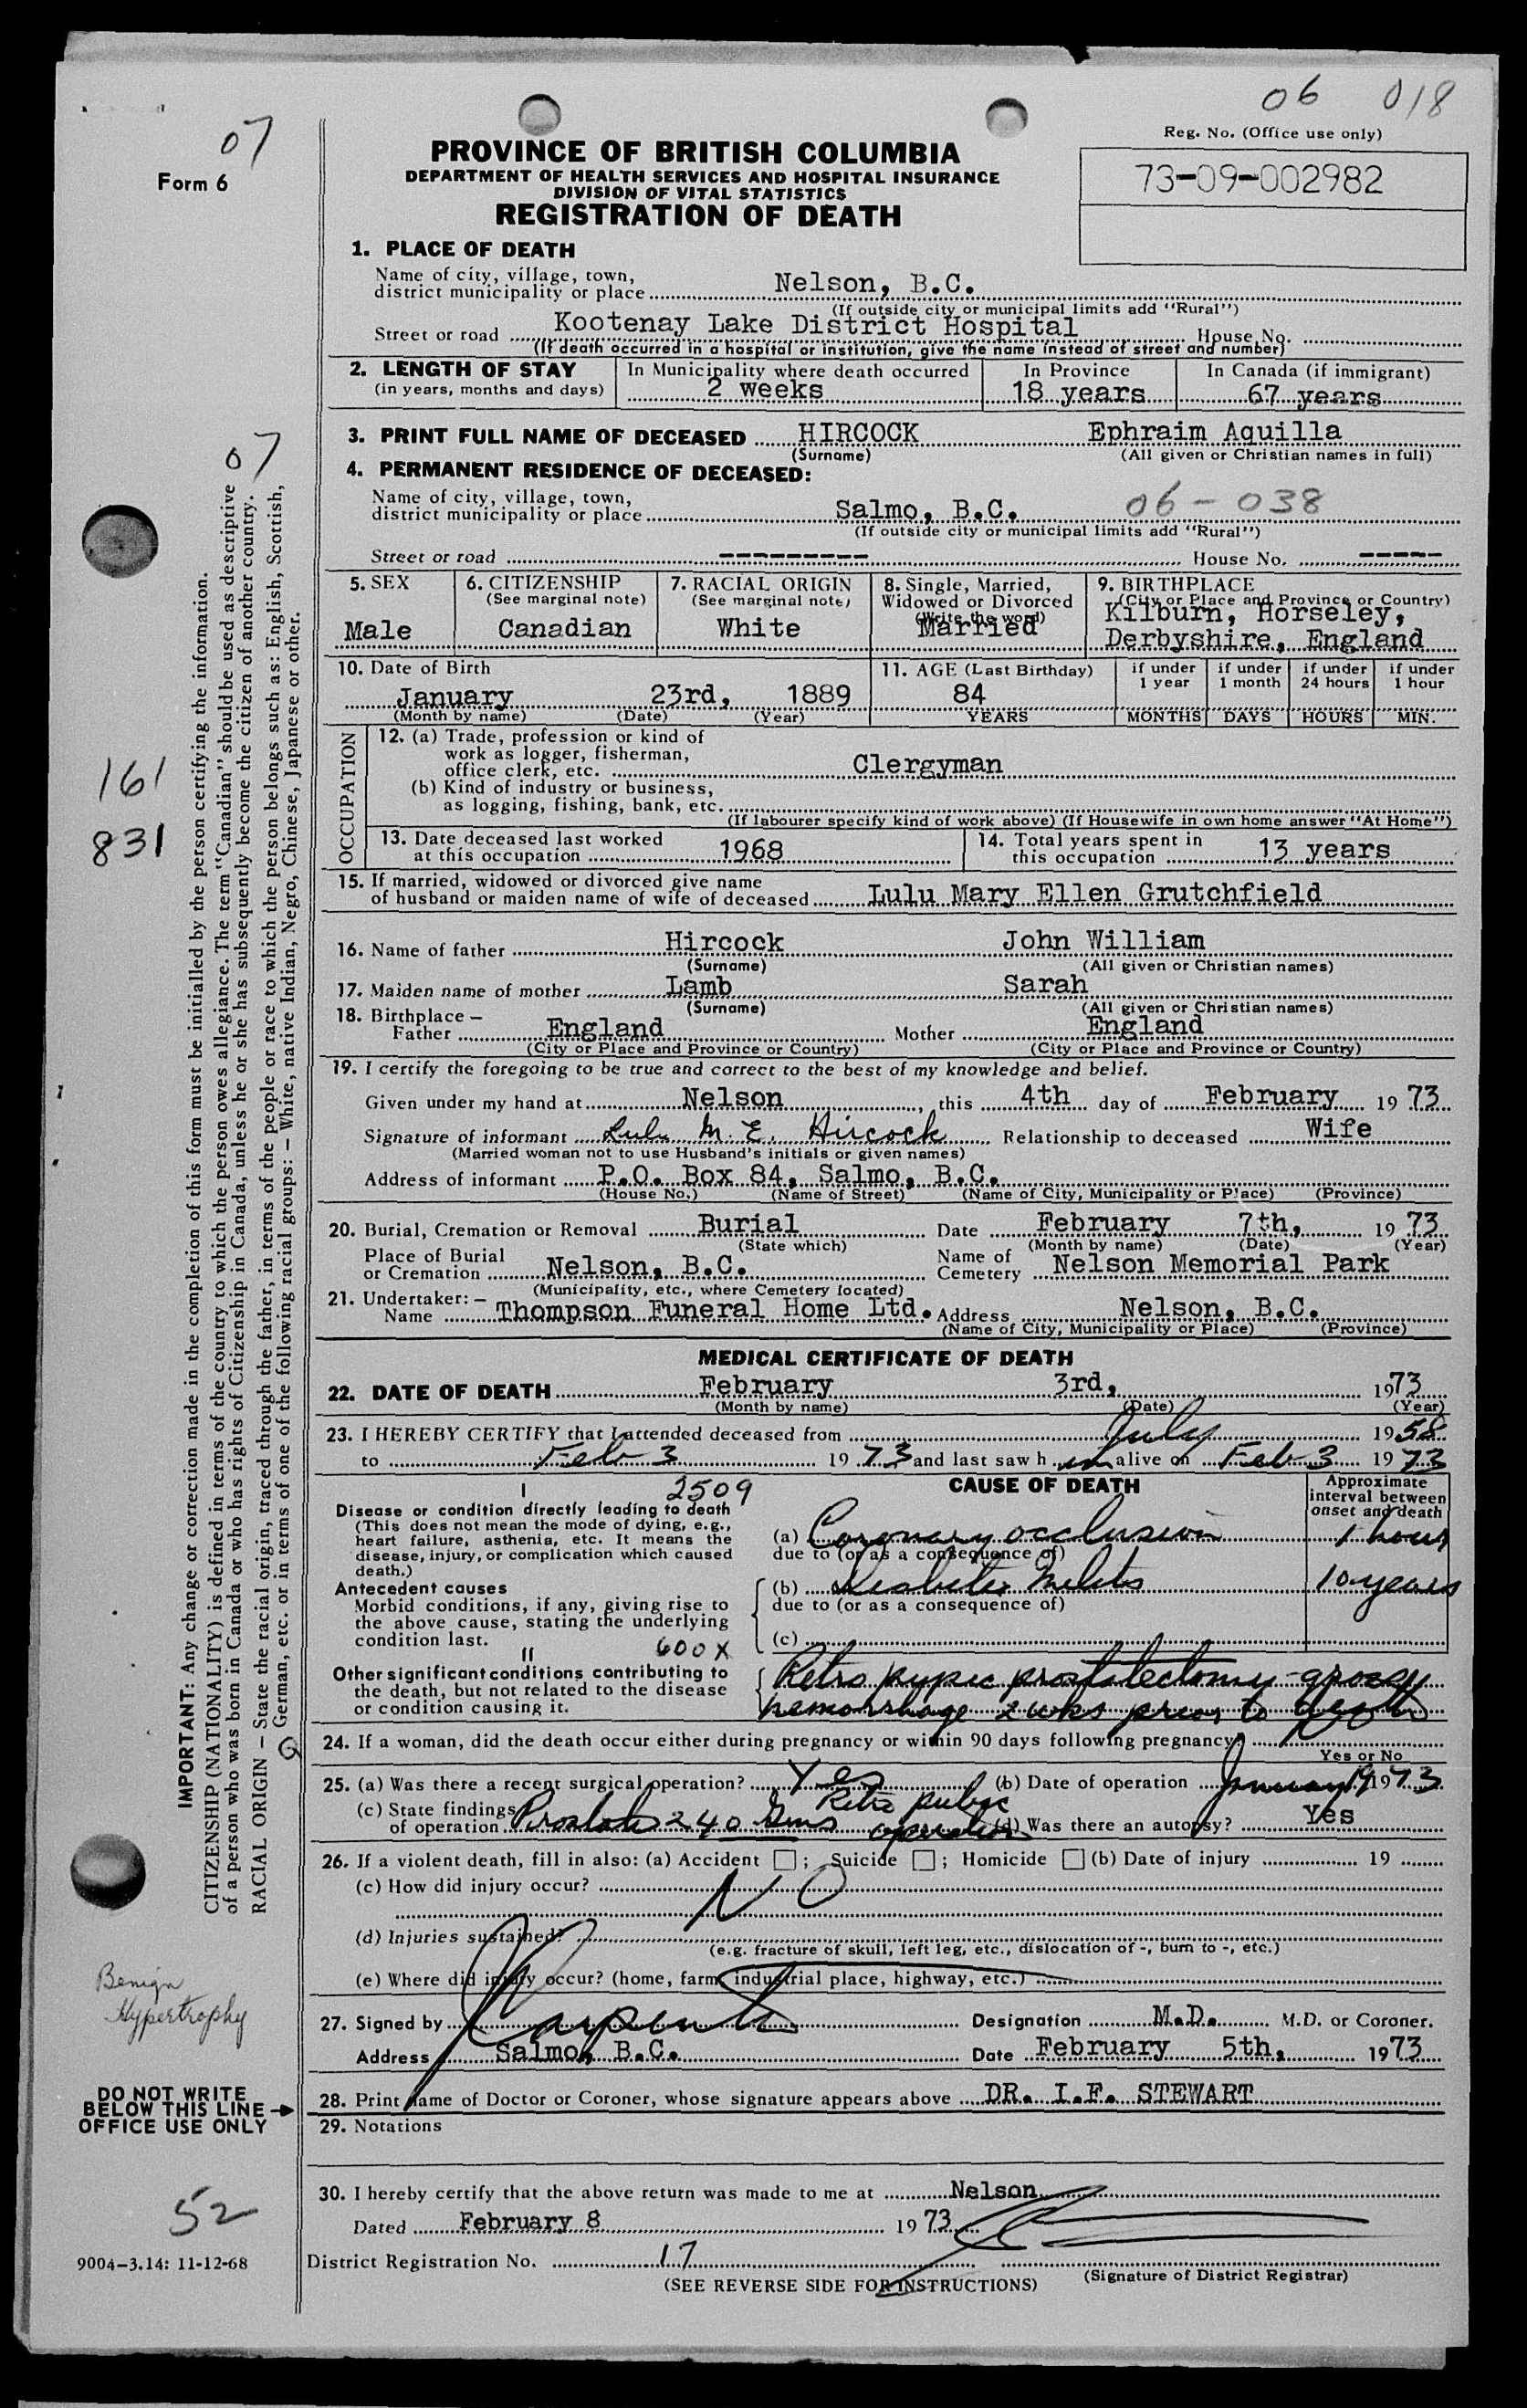 06 018
07
Form 6
PROVINCE OF BRITISH COLUMBIA
DEPARTMENT OF HEALTH SERVICES AND HOSPITAL INSURANCE
DIVISION OF VITAL STATISTICS
REGISTRATION OF DEATH
Reg. No. (Office use only)
73-09-002982
1. PLACE OF DEATH
Name of city, village, town,
district municipality or place Nelson, B.C.
(If outside city or municipal limits add "Rural")
Street or road Kootenay Lake District Hospital House No.
(If death occurred in a hospital or institution, give the name instead of street and number)
2. LENGTH OF STAY In Municipality where death occurred In Province In Canada (if immigrant)
(in years, months and days) 2 weeks 18 years 67 years
3. PRINT FULL NAME OF DECEASED HIRCOCK Ephraim Aquilla
(Surname) (All given or Christian names in full)
4. PERMANENT RESIDENCE OF DECEASED:
Name of city, village, town,
district municipality or place Salmo, B.C. 06-038
(If outside city or municipal limits add "Rural")
Street or road --------- House No. -----
5. SEX 6. CITIZENSHIP 7. RACIAL ORIGIN 8. Single, Married, 9. BIRTHPLACE
(See marginal note) (See marginal note) Widowed or Divorced (City or Place and Province or Country)
(Write the word) Kilburn, Horseley,
Male Canadian White Married Derbyshire, England
10. Date of Birth 11. AGE (Last Birthday) if under 1 year if under 1 month if under 24 hours if under 1 hour
January 23rd, 1889 84
(Month by name) (Date) (Year) YEARS MONTHS DAYS HOURS MIN.
OCCUPATION
12. (a) Trade, profession or kind of
work as logger, fisherman,
office clerk, etc. Clergyman
(b) Kind of industry or business,
as logging, fishing, bank, etc.
(If labourer specify kind of work above) (If Housewife in own home answer "At Home")
13. Date deceased last worked 14. Total years spent in
at this occupation 1968 this occupation 13 years
15. If married, widowed or divorced give name
of husband or maiden name of wife of deceased Lulu Mary Ellen Grutchfield
16. Name of father Hircock John William
(Surname) (All given or Christian names)
17. Maiden name of mother Lamb Sarah
(Surname) (All given or Christian names)
18. Birthplace –
Father England Mother England
(City or Place and Province or Country) (City or Place and Province or Country)
19. I certify the foregoing to be true and correct to the best of my knowledge and belief.
Given under my hand at Nelson, this 4th day of February 19 73
Signature of informant Lulu M. E. Hircock Relationship to deceased Wife
(Married woman not to use Husband's initials or given names)
Address of informant P.O. Box 84, Salmo, B.C.
(House No.) (Name of Street) (Name of City, Municipality or Place) (Province)
20. Burial, Cremation or Removal Burial Date February 7th, 19 73
(State which) (Month by name) (Date) (Year)
Place of Burial Name of
or Cremation Nelson, B.C. Cemetery Nelson Memorial Park
(Municipality, etc., where Cemetery located)
21. Undertaker: –
Name Thompson Funeral Home Ltd. Address Nelson, B.C.
(Name of City, Municipality or Place) (Province)
MEDICAL CERTIFICATE OF DEATH
22. DATE OF DEATH February 3rd, 1973
(Month by name) (Date) (Year)
23. I HEREBY CERTIFY that I attended deceased from July 1958
to Feb 3 19 73 and last saw h im alive on Feb 3 19 73
I 2509 CAUSE OF DEATH Approximate
interval between
onset and death
Disease or condition directly leading to death
(This does not mean the mode of dying, e.g.,
heart failure, asthenia, etc. It means the
disease, injury, or complication which caused
death.)
(a) Coronary occlusion 1 hour
due to (or as a consequence of)
Antecedent causes
Morbid conditions, if any, giving rise to
the above cause, stating the underlying
condition last.
(b) Diabetes Melitis 10 years
due to (or as a consequence of)
(c)
II 600 X
Other significant conditions contributing to
the death, but not related to the disease
or condition causing it.
Retro pupic prostatectomy
hemorrhage 2 wks prior to death
24. If a woman, did the death occur either during pregnancy or within 90 days following pregnancy?
Yes or No
25. (a) Was there a recent surgical operation? Yes (b) Date of operation January 19 1973
(c) State findings
of operation Prostate 240 Gms Retro pubic operation (d) Was there an autopsy? Yes
26. If a violent death, fill in also: (a) Accident ; Suicide ; Homicide (b) Date of injury 19
(c) How did injury occur? NO
(d) Injuries sustained?
(e.g. fracture of skull, left leg, etc., dislocation of -, burn to -, etc.)
(e) Where did injury occur? (home, farm, industrial place, highway, etc.)
27. Signed by Designation M.D. M.D. or Coroner.
Address Salmo, B.C. Date February 5th, 1973
28. Print name of Doctor or Coroner, whose signature appears above DR. I.F. STEWART
29. Notations
30. I hereby certify that the above return was made to me at Nelson
Dated February 8 19 73
District Registration No. 17
(Signature of District Registrar)
(SEE REVERSE SIDE FOR INSTRUCTIONS)
07
161
831
IMPORTANT: Any change or correction made in the completion of this form must be initialled by the person certifying the information.
CITIZENSHIP (NATIONALITY) is defined in terms of the country to which the person owes allegiance. The term "Canadian" should be used as descriptive
of a person who was born in Canada or who has rights of Citizenship in Canada, unless he or she has subsequently become the citizen of another country.
RACIAL ORIGIN – State the racial origin, traced through the father, in terms of the people or race to which the person belongs such as: English, Scottish,
German, etc. or in terms of one of the following racial groups: – White, native Indian, Negro, Chinese, Japanese or other.
Benign
Hypertrophy
DO NOT WRITE
BELOW THIS LINE
OFFICE USE ONLY
52
9004-3.14: 11-12-68